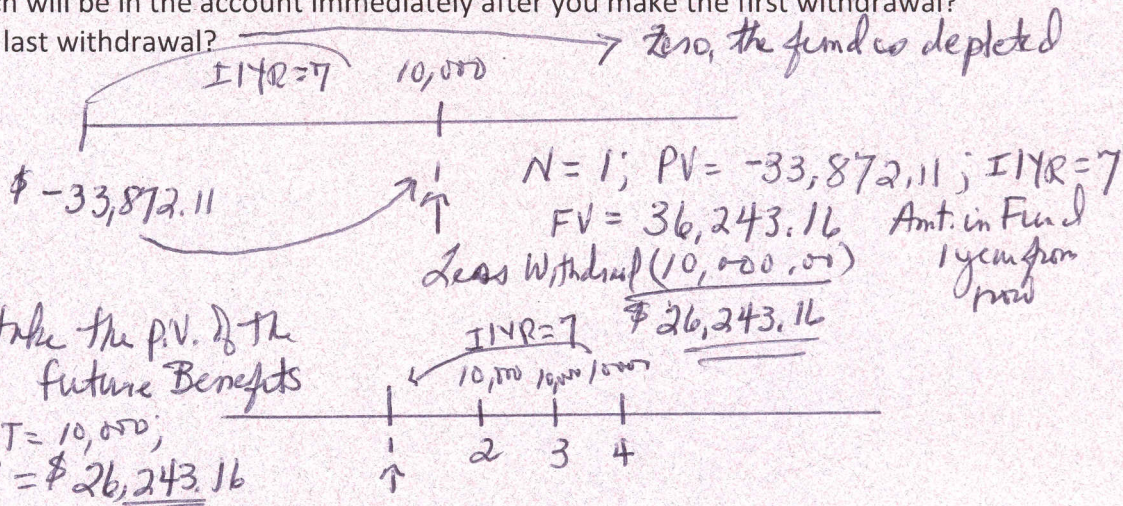 will be in the account immediately after you make the first withdrawal?
last withdrawal? Zero, the fund is depleted
I/YR=7 10,000
$ -33,872.11
N = 1; PV = -33,872.11; I/YR=7
FV = 36,243.16 Amt. in Fund
Less Withdrawl (10,000.00) 1 year from
now
$ 26,243.16
take the p.V. of the
future Benefits
I/YR=7
10,000 10,000 10000
T= 10,000;
2 3 4
= $ 26,243.16